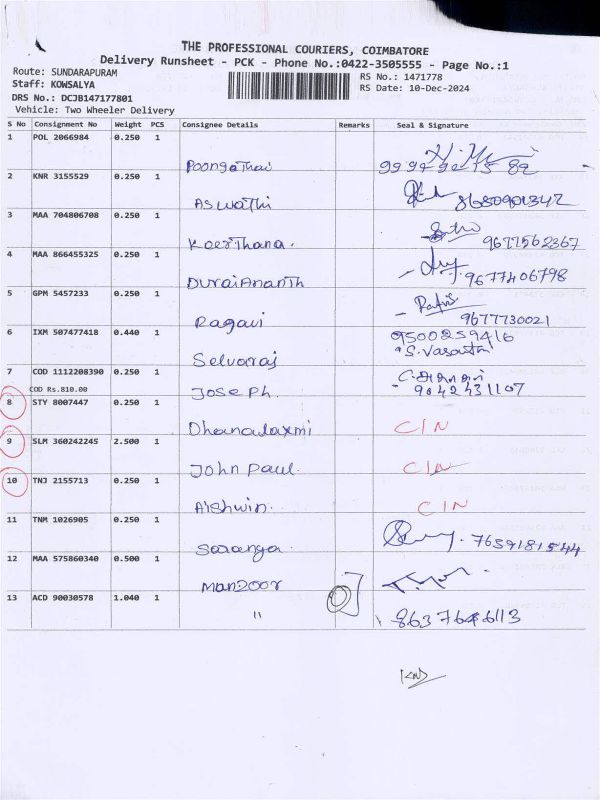 THE PROFESSIONAL COURIERS, COIMBATORE
Delivery Runsheet - PCK - Phone No.:0422-3505555 - Page No.:1
Route: SUNDARAPURAM
RS No.: 1471778
Staff: KOWSALYA
RS Date: 10-Dec-2024
DRS No.: DCJB147177801
Vehicle: Two Wheeler Delivery
S No Consignment No Weight PCS Consignee Details Remarks Seal & Signature
1 POL 2066984 0.250 1
Poongathai
2 KNR 3155529 0.250 1
Aswathi 8680901342
3 MAA 704806708 0.250 1
Keerthana. 9677562367
4 MAA 866455325 0.250 1
DuraiAnanth 9677406798
5 GPM 5457233 0.250 1
Ragavi 9677730021
6 IXM 507477418 0.440 1 9500259416
Selvaraj S. Vasanthi
7 COD 1112208390 0.250 1
COD Rs.810.00
Joseph. 9042431107
8 STY 8007447 0.250 1
Dhanalaxmi C/N
9 SLM 360242245 2.500 1
John Paul. C/N
10 TNJ 2155713 0.250 1
Aishwin. C/N
11 TNM 1026905 0.250 1
Saranga. 7659181544
12 MAA 575860340 0.500 1
Manzoor
13 ACD 90030578 1.040 1
" 8637646113